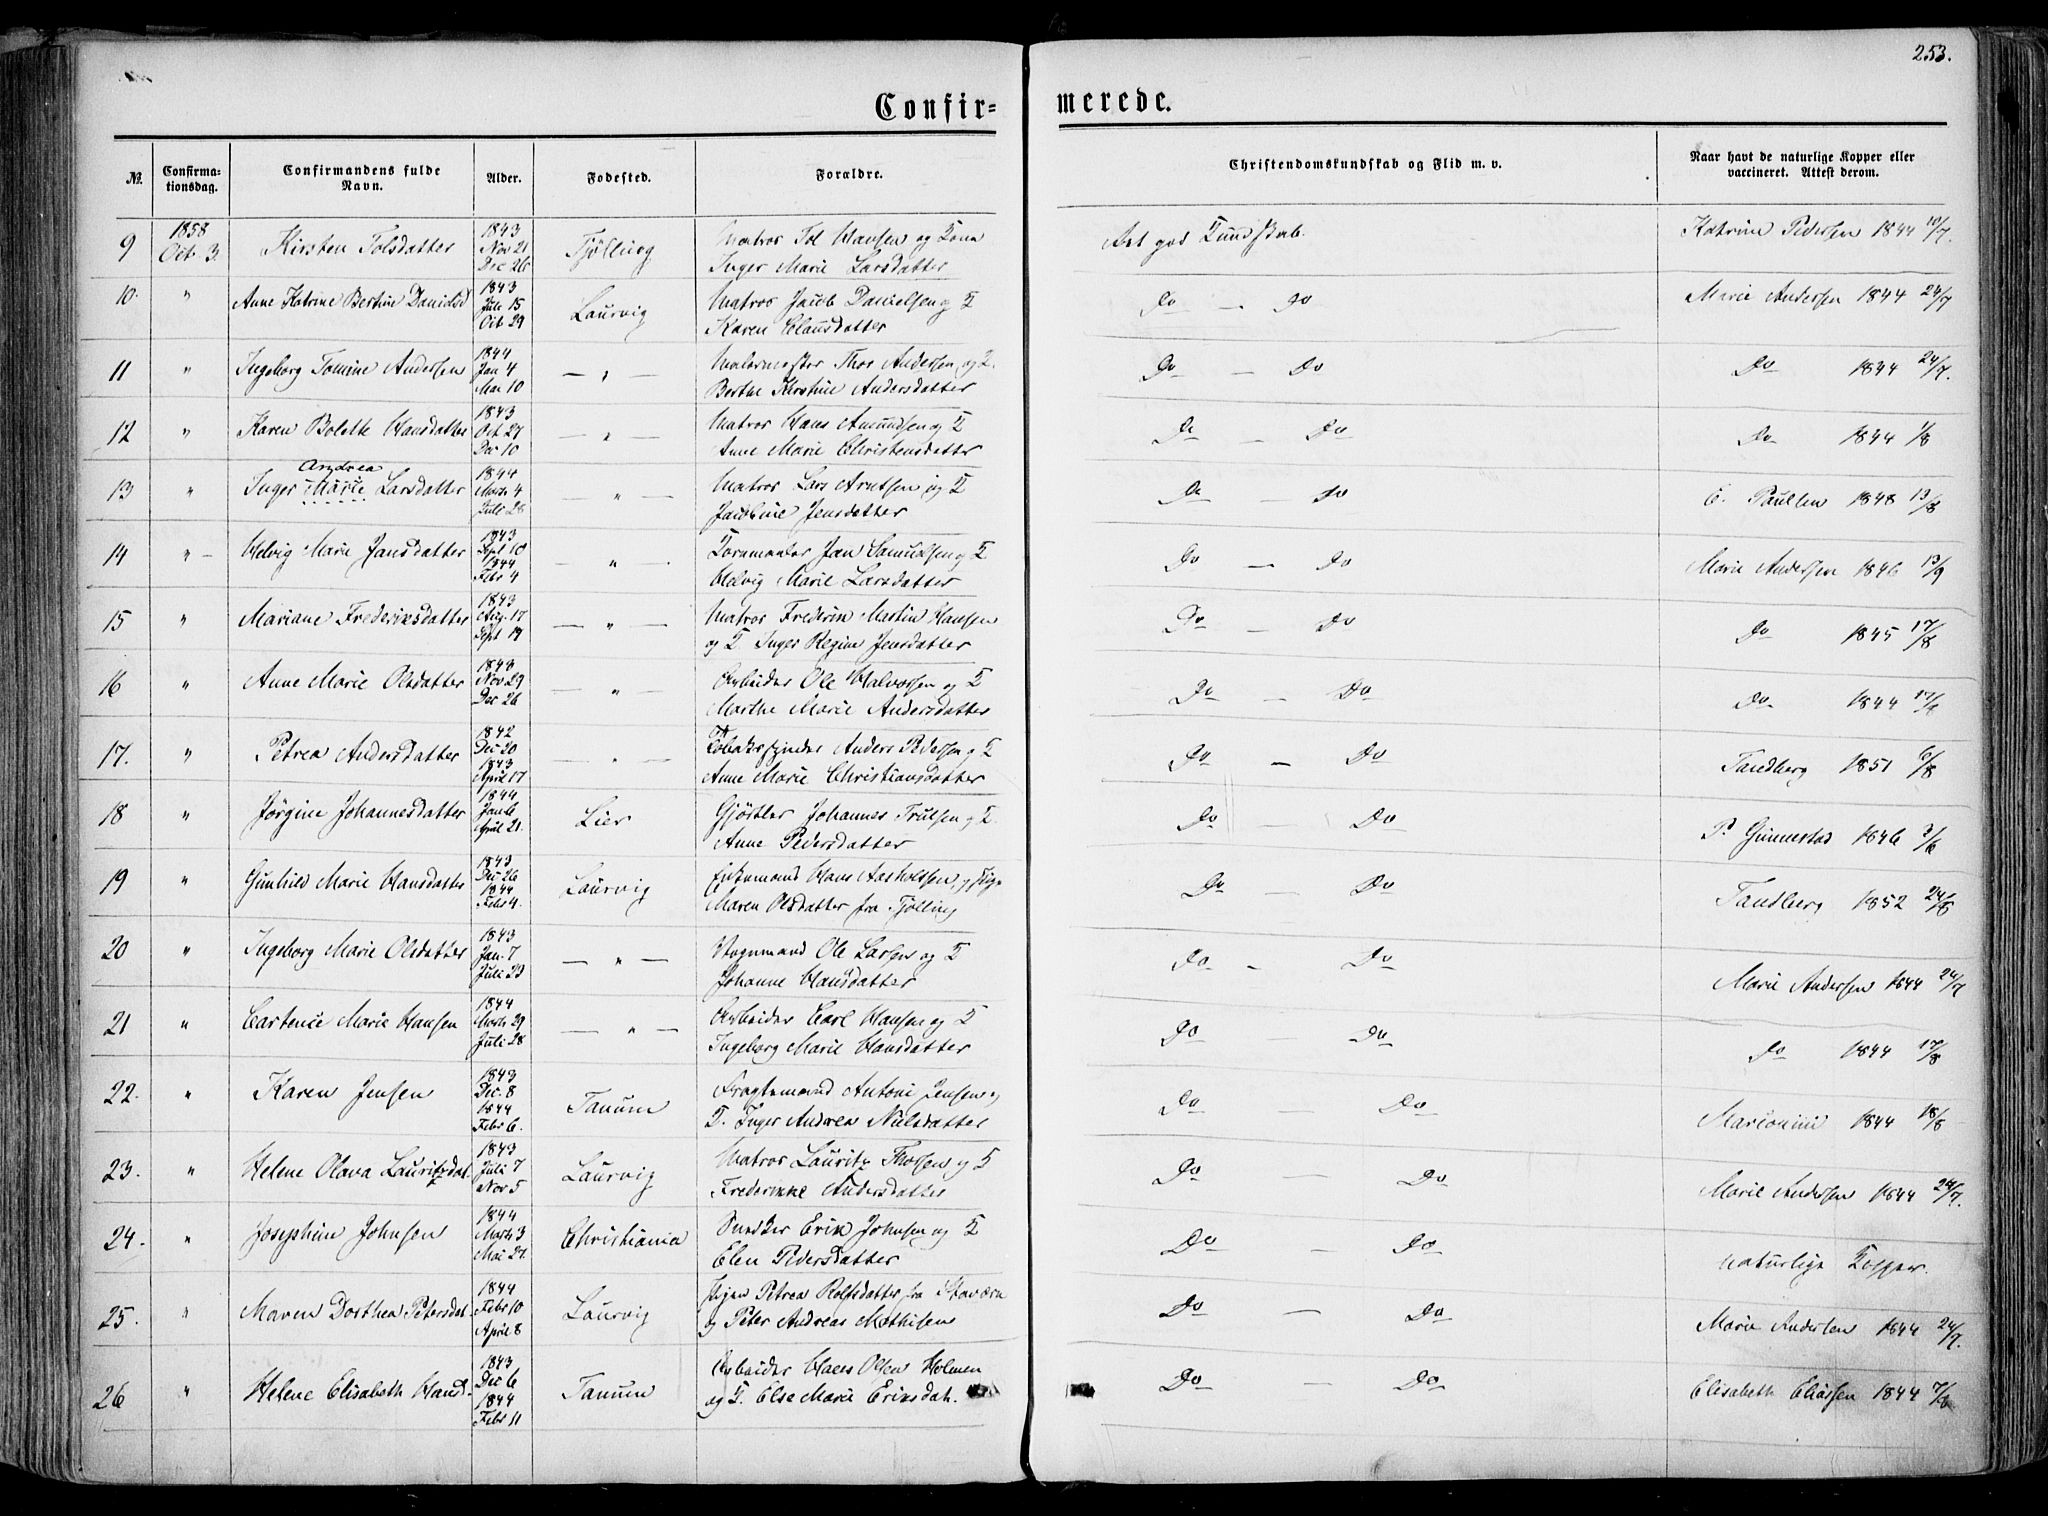 253.
Confir-
merede.
No. Confirma-tionsdag. Confirmandens fulde Navn. Alder. Fodested. Forældre. Christendomskundskab og Flid m. v. Naar havt de naturlige Kopper eller vaccineret. Attest derom.
9 1858 Oct 3. Kirsten Tolsdatter 1843 Nov 21 Dec 26 Tjølling Matros Tol Hansen og Kone Inger Marie Larsdatter god Kundskab. Katrine Pedersen 1844 10/7.
10. " Anne Katrine Bertine Danielsd 1843 Juli 15 Oct 29 Laurvig Matros Jacob Danielsen og K Karen Clausdatter Do — do Marie Andersen 1844 24/7
11 " Ingeborg Tomine Andersen 1844 Jan 4 Mai 10 — " — Malermester Thor Andersen og K. Berthe Kirstine Andersdatter Do — Do Do 1844 24/7.
12 " Karen Bolette Hansdatter 1843 Oct 27 Dec 10 — " — Matros Hans Amundsen og K Anne Marie Christensdatter Do — Do Do 1844 1/8
13 " Inger Andrea Marie Larsdatter 1844 Marts 4 Juli 28 — " — Matros Lars Arntsen og K Jacobine Jensdatter Do — do E. Paulsen 1848 13/8
14 " — Helvig Marie Jansdatter 1843 Sept 10 1844 Febr 4 — " — Jan Samuelsen og K Helvig Marie Larsdatter Do — Do Marie Andersen 1846 13/9
15 " Mariane Frederiksdatter 1843 Aug. 17 Sept 19 — " — Matros Frederik Martin Hansen og K Inger Regine Jensdatter Do — Do Do 1845 17/8
16 " Anne Marie Olsdatter 1843 Nov 29 Dec 26 — " — Arbeider Ole Halvorsen og K Marthe Marie Andersdatter Do — Do Do 1844 17/8
17. " Petrea Andersdatter 1842 Dec 20 1843 April 17 — " — Tobaksspinder Anders Pedersen og K Anne Marie Christiansdatter Do — Do Tandberg 1851 6/8
18 " Jørgine Johannesdatter 1844 Jan 6 April 21. Lier Gjørtler Johannes Trulsen og K. Anne Pedersdatter Do — Do P. Gunnestad 1846 3/6
19 " Gunhild Marie Hansdatter 1843. Dec 26 1844 Febr 4. Laurvig Enkemand Hans Aasholtsen, og Pige Maren Olsdatter fra Tjølling Do — Do Tandberg 1852 24/8
20 " Ingeborg Marie Olsdatter 1843 Jan. 7 Juli 23 — " — Vognmand Ole Larsen og K Johanne Hansdatter Do - Do Marie Andersen 1844 24/7
21 " Marie Hansen 1844 Marts 29 Juli 28 — " — Arbeider Carl Hansen og K Ingeborg Marie Hansdatter Do — Do Do 1844 17/8
22. " Karen Jensen 1843 Dec. 8 1844 Febr 6. Tanum Fragtemand Antoni Jensen og K. Inger Andrea Nielsdatter Do — Do Marconini 1844 18/8
23. " Helene Olava Lauritzdat. 1843 Juli 7 Nov 5 Laurvig Matros Lauritz Thorsen og K Frederikke Andersdatter Do — Do Marie Andersen 1844 24/7.
24. " Josephine Johnsen 1844 Marts 3 Mai 27. Christiania Snedker Erik Johnsen og K Elen Pedersdatter Do — Do naturlige Kopper.
25. " Maren Dorthea Petersdat. 1844 Febr 10 April 8 Laurvig Pigen Petrea Rolfsdatter fra Stavern og Peter Andreas Mathisen Do — Do Marie Andersen 1844 24/7.
26 " Helene Elisabeth Hansd. 1843 Dec 6 1844 Febr 11 Tanum Arbeider Hans Olsen Holmen og K. Else Marie Eriksdat. Do — Do Elisabeth Eliassen 1844 7/8